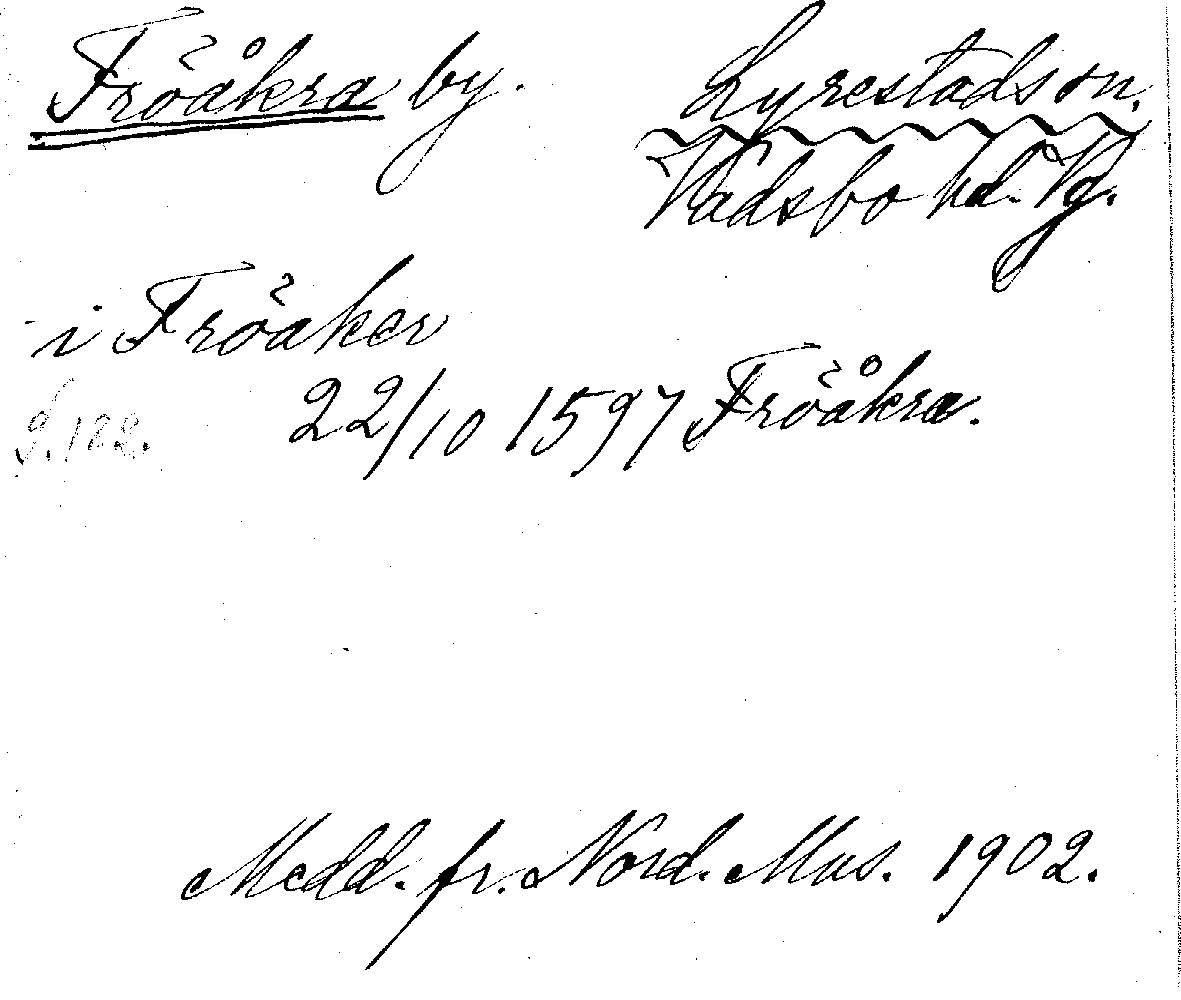 Fröåkra by.
Lyrestads sn.
Vadsbo hd. Vg.
i Fröaker
22/10 1597 Fröåkra.
S. 122.
Medd. fr. Nord. Mus. 1902.